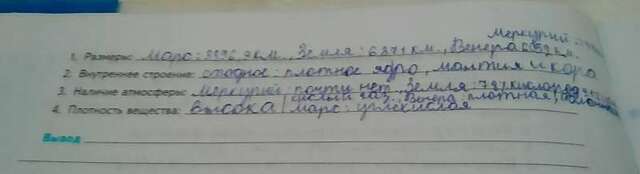 Меркурий
1. Размеры: Марс: 3396,9 км., Земля: 6371 км., Венера 6052 км.
2. Внутреннее строение: сходное: плотное ядро, мантия и кора
3. Наличие атмосферы: Меркурий: почти нет, Земля: кислород
кислый газ, Венера плотная,
4. Плотность вещества: высока / Марс: углекислая
Вывод